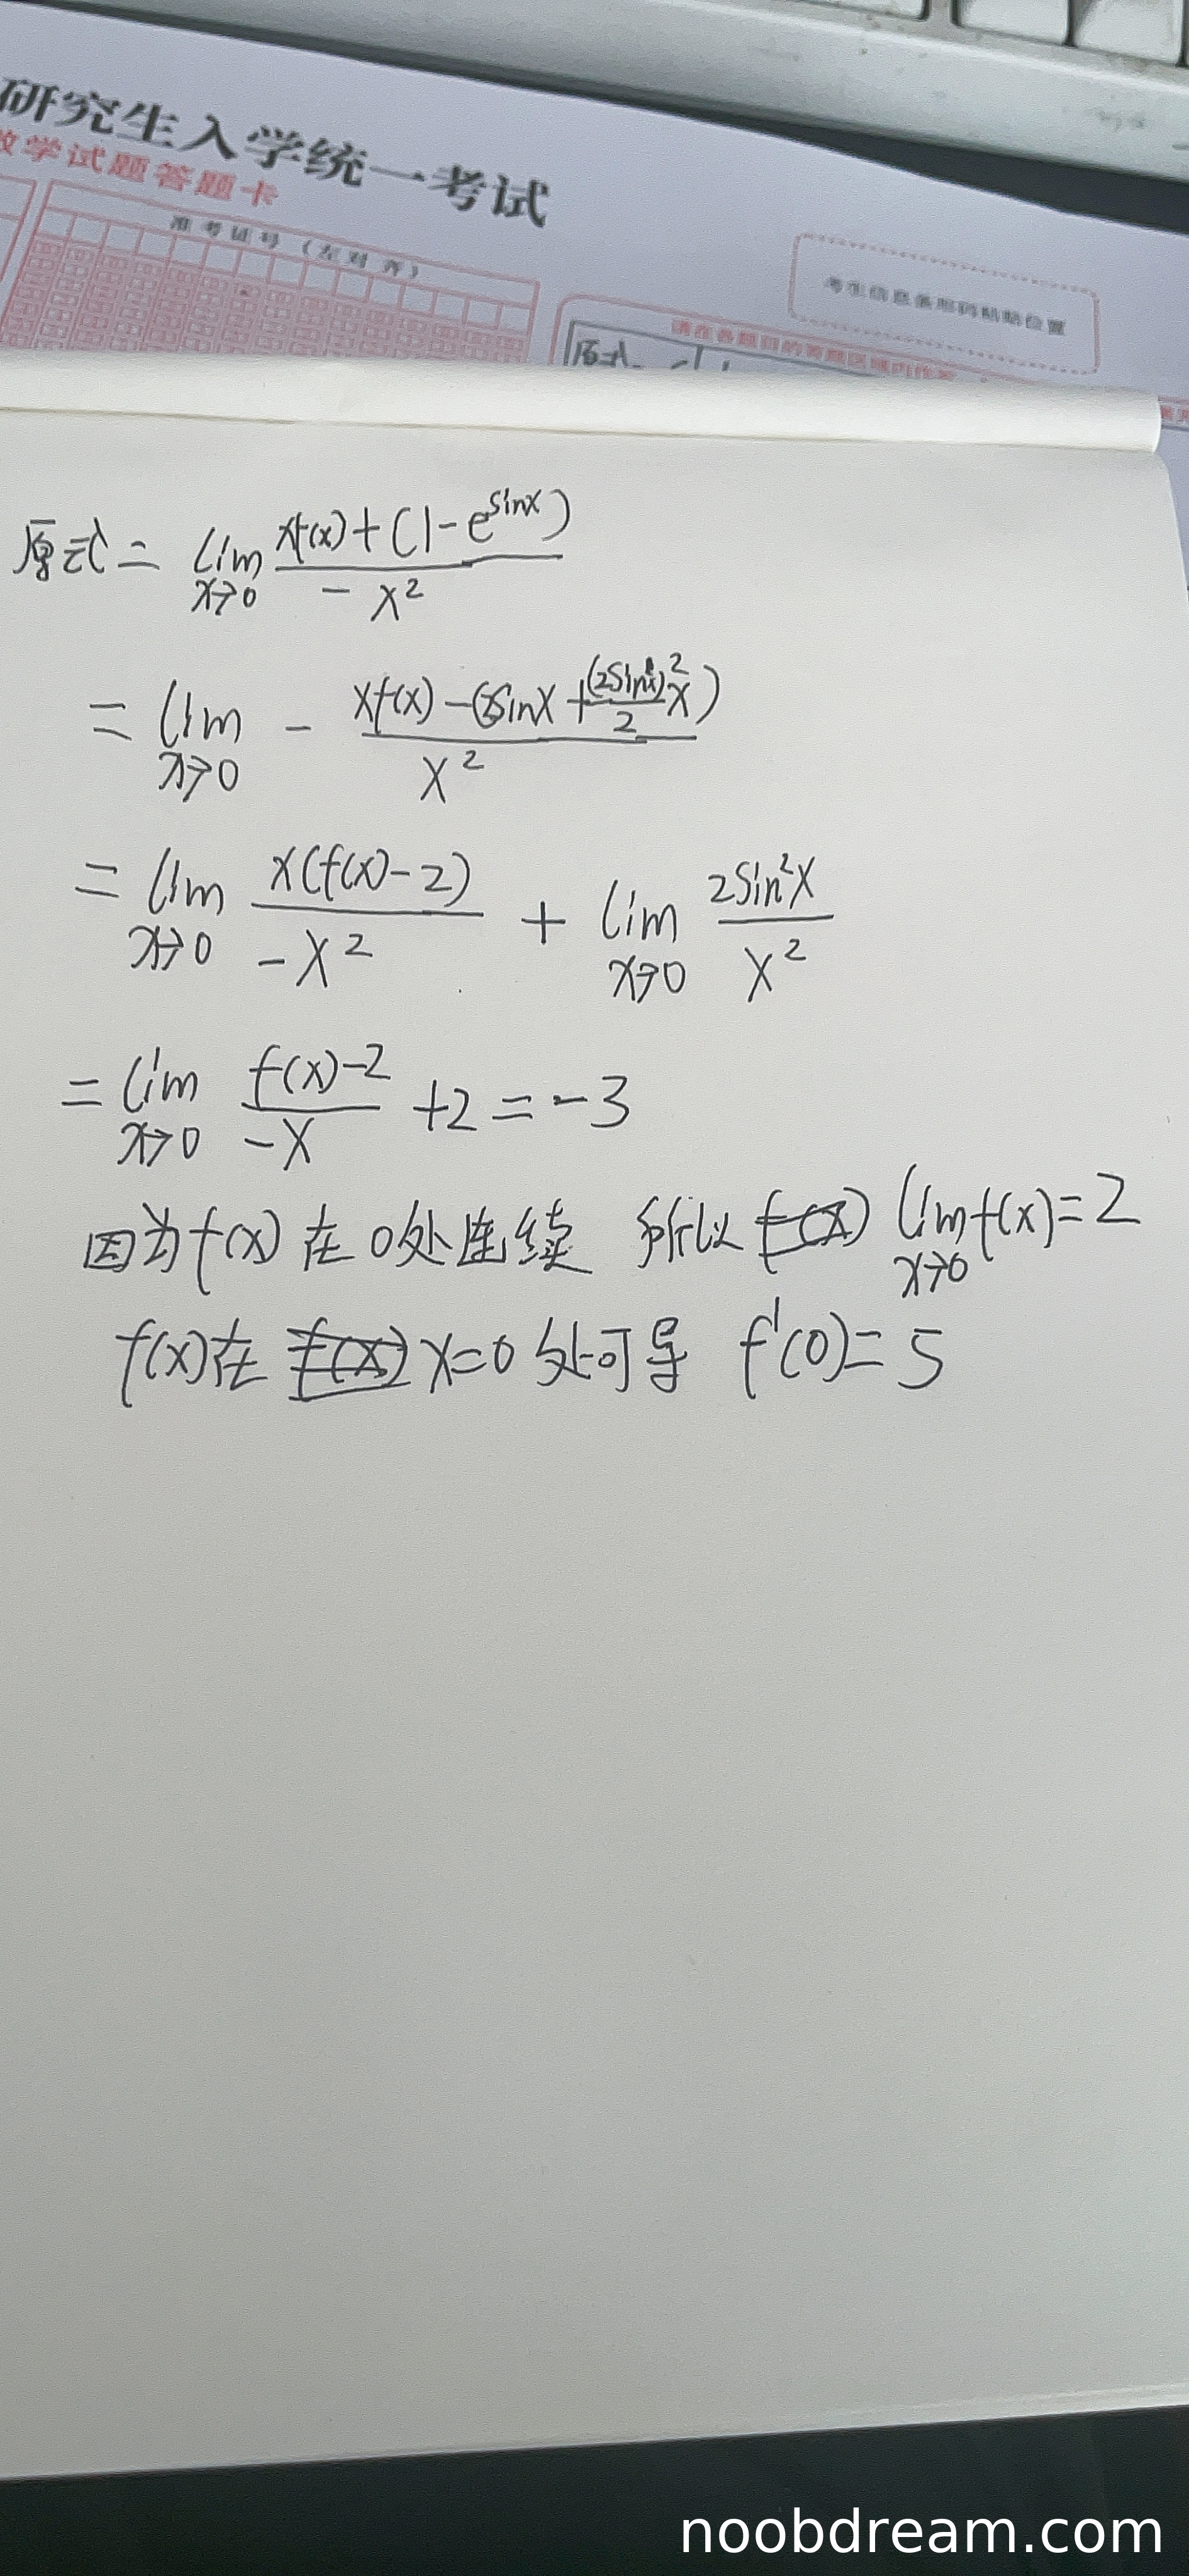 研究生入学统一考试
数学试题答题卡
准考证号（左对齐）
考生信息条形码粘贴位置
请在各题目的答题区域内作答
原式
原式 = lim x→0 (xf(x) + (1 - e^sinx)) / (- x²)
= lim x→0 - (xf(x) - (2sinx + (2sinx)²/2 x)) / x²
= lim x→0 x(f(x) - 2) / (-x²) + lim x→0 2sin²x / x²
= lim x→0 (f(x) - 2) / (-x) + 2 = -3
因为f(x)在0处连续 所以 lim x→0 f(x) = 2
f(x)在 x=0处可导 f'(0) = 5
noobdream.com